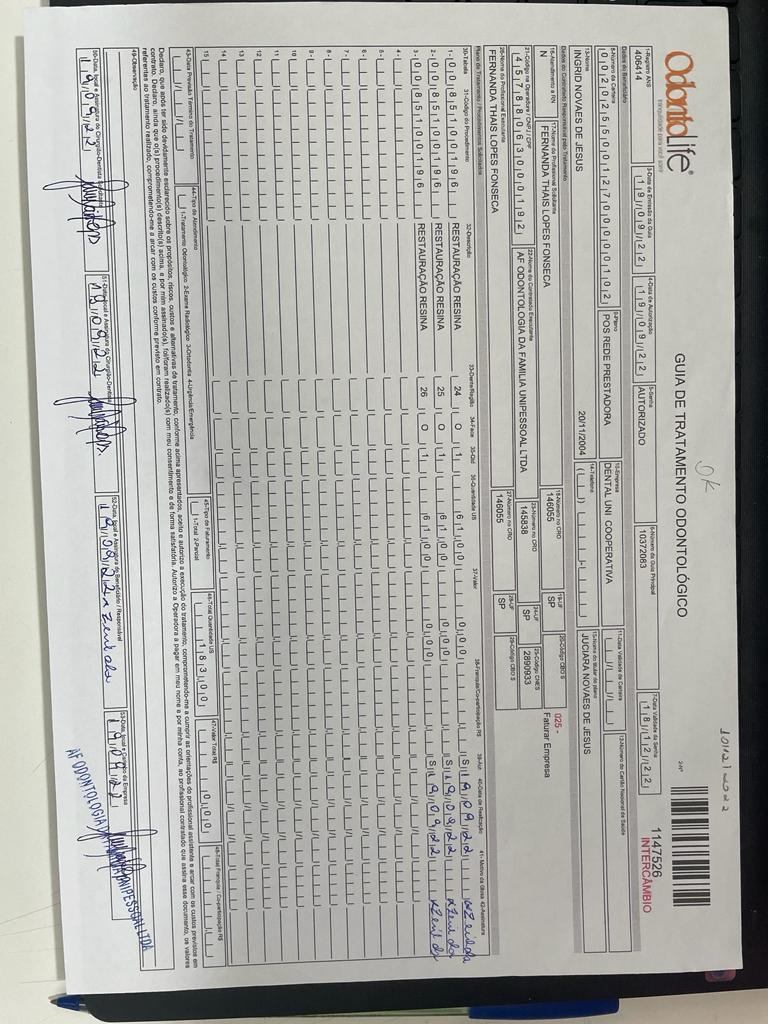 OdontoLife®
tranquilidade para você sorrir
GUIA DE TRATAMENTO ODONTOLÓGICO
OK
10/12/2022
2-Nº
1147526
INTERCÂMBIO
1-Registro ANS
406414
3-Data de Emissão da Guia
19/09/22
4-Data de Autorização
19/09/22
5-Senha
AUTORIZADO
6-Número da Guia Principal
10372083
7-Data Validade da Senha
18/12/22
Dados do Beneficiário
8-Número da Carteira
9-Plano
POS REDE PRESTADORA
10-Empresa
DENTAL UNI COOPERATIVA
11-Data Validade da Carteira
12-Número do Cartão Nacional de Saúde
13-Nome
INGRID NOVAES DE JESUS
20/11/2004
14-Telefone
15-Nome do titular do plano
JUCIARA NOVAES DE JESUS
Dados do Contratado Responsável pelo Tratamento
16-Atendimento a RN
N
17-Nome do Profissional Solicitante
FERNANDA THAIS LOPES FONSECA
18-Número no CRO
146055
19-UF
SP
20-Código CBO S
025 -
Faturar Empresa
21-Código na Operadora / CNPJ / CPF
45788063000192
22-Nome do Contratado Executante
AF ODONTOLOGIA DA FAMILIA UNIPESSOAL LTDA
23-Número no CRO
145838
24-UF
SP
25-Código CNES
2890933
26-Nome do Profissional Executante
FERNANDA THAIS LOPES FONSECA
27-Número no CRO
146055
28-UF
SP
29-Código CBO S
Plano de Tratamento / Procedimentos Solicitados
30-Tabela 31-Código do Procedimento 32-Descrição 33-Dente/Região 34-Face 35-Qtd 36-Quantidade US 37-Valor 38-Franquia/Co-participação R$ 39-Aut 40-Data de Realização 41-Motivo da Glosa 42-Assinatura
1- 00 85100196 RESTAURAÇÃO RESINA 24 O 1 61,00 0,00 S 19/09/22
2- 00 85100196 RESTAURAÇÃO RESINA 25 O 1 61,00 0,00 S 19/09/22
3- 00 85100196 RESTAURAÇÃO RESINA 26 O 1 61,00 0,00 S 19/09/22
4-
5-
6-
7-
8-
9-
10
11
12
13
14
15
43-Data Prevista Término do Tratamento
44-Tipo de Atendimento
1-Tratamento Odontológico 2-Exame Radiológico 3-Ortodontia 4-Urgência/Emergência
45-Tipo de Faturamento
1-Total 2-Parcial
46-Total Quantidade US
183,00
47-Valor Total R$
0,00
48-Total Franquia / Co-participação R$
Declaro, que após ter sido devidamente esclarecido sobre os propósitos, riscos, custos e alternativas de tratamento, conforme acima apresentados, aceito e autorizo a execução do tratamento, comprometendo-me a cumprir as orientações do profissional assistente e arcar com os custos previstos em
contrato. Declaro, ainda que o(s) procedimento(s) descrito(s) acima, e por mim assinado(s), foi/foram realizado(s) com meu consentimento e de forma satisfatória. Autorizo a Operadora a pagar em meu nome e por minha conta, ao profissional contratado que assina esse documento, os valores
referentes ao tratamento realizado, comprometendo-me a arcar com os custos conforme previsto em contrato.
49-Observação
50-Data, local e Assinatura do Cirurgião-Dentista Solicitante
19/09/22
51-Data, local e Assinatura do Cirurgião-Dentista
19/09/22
52-Data, local e Assinatura do Beneficiário / Responsável
19/09/22
53-Data, local e Carimbo da Empresa
19/09/22
AF ODONTOLOGIA UNIPESSOAL LTDA